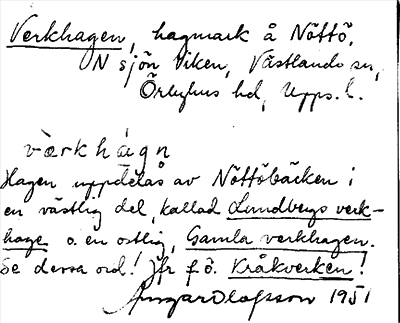 Verkhagen, hagmark å Nöttö,
N sjön Viken, Västlands sn,
Örbyhus hd, Upps. l.
værkhágn
Hagen uppdelas av Nöttöbäcken i
en västlig del, kallad Lundbergs verk-
hage o. en ostlig, Gamla verkhagen.
Se dessa ord! Jfr f.ö. Kråkverken!
Ingvar Olofsson 1951